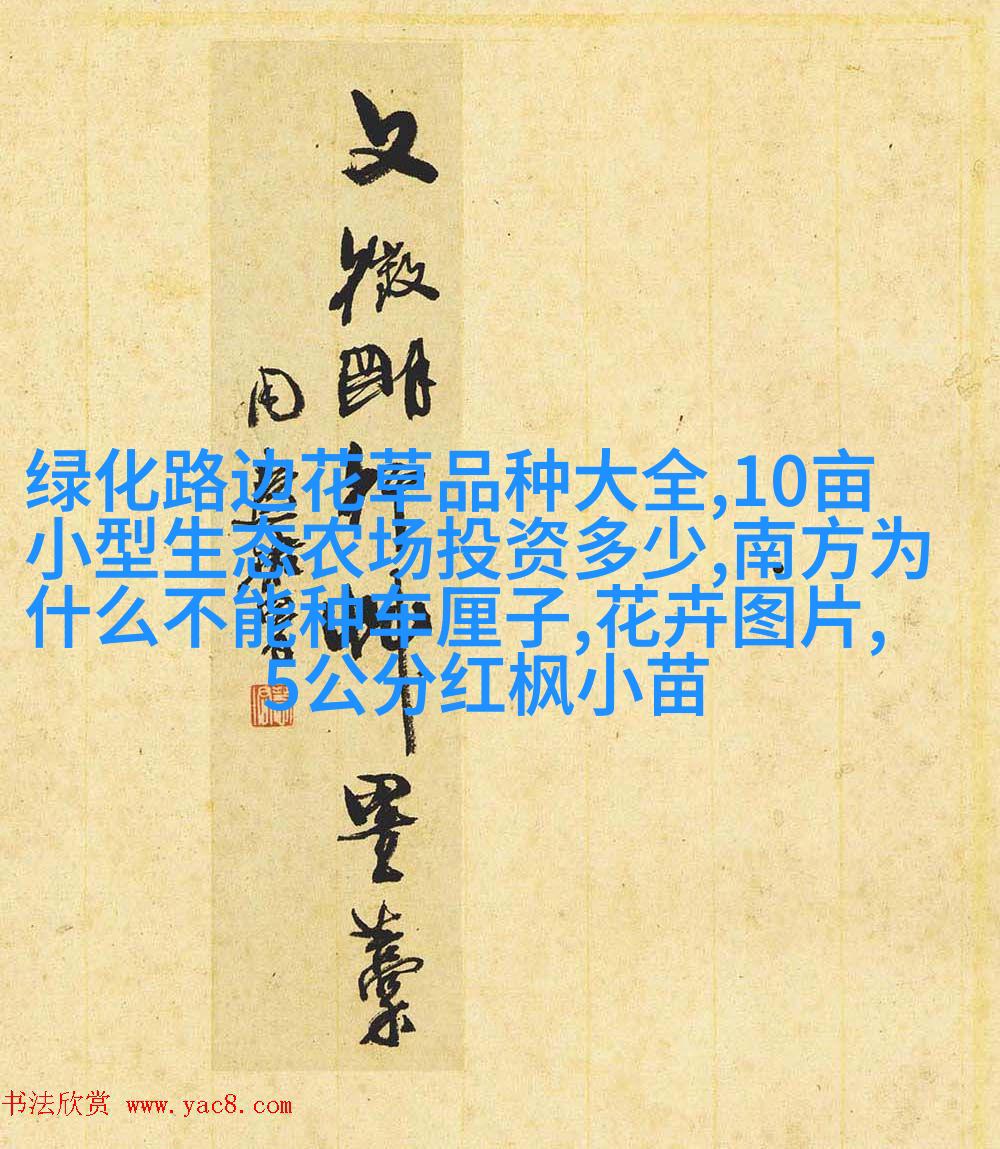 文徵明
墨藁
绿化路边花草品种大全,10亩
小型生态农场投资多少,南方为
什么不能种车厘子,花卉图片,
5公分红枫小苗
书法欣赏 www.yac8.com